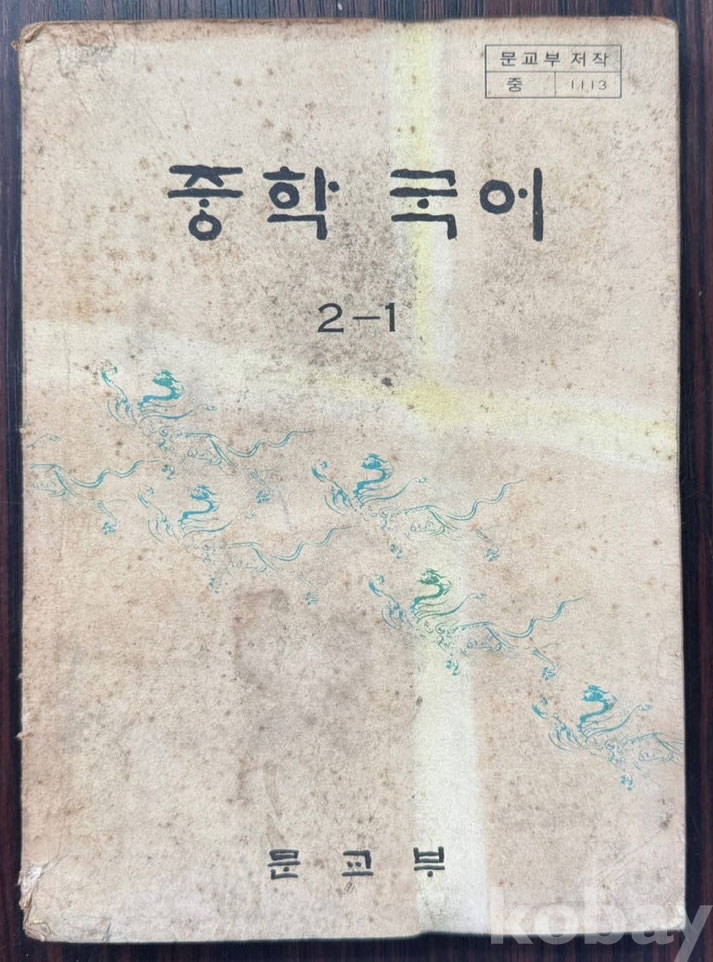 문교부 저작
중 1113
중학 국어
2-1
문교부
kobay